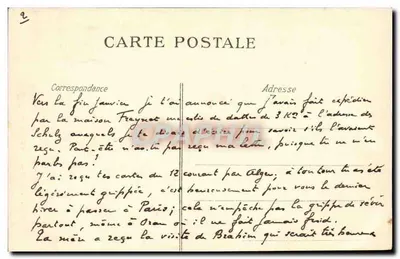 2
CARTE POSTALE
Correspondance
Adresse
Vers la fin Janvier je t'ai annoncé que j'avais fait expédier
par la maison Freynet un colis de dattes de 3 Kos à l'adresse de
Schulz auxquels je te savoir s'ils l'avaient
reçu. Peut-être n'as-tu pas reçu ma lettre, puisque tu ne m'en
parles pas!
J'ai reçu tes cartes du 12 courant par Alger, à ton tour tu as été
légèrement grippée, c'est heureusement pour vous le dernier
hiver à passer à Paris; cela n'empêche pas la grippe de sévir
partout, même à Oran où il ne fait jamais froid.
La mère a reçu la visite de Brahim qui serait très heureux